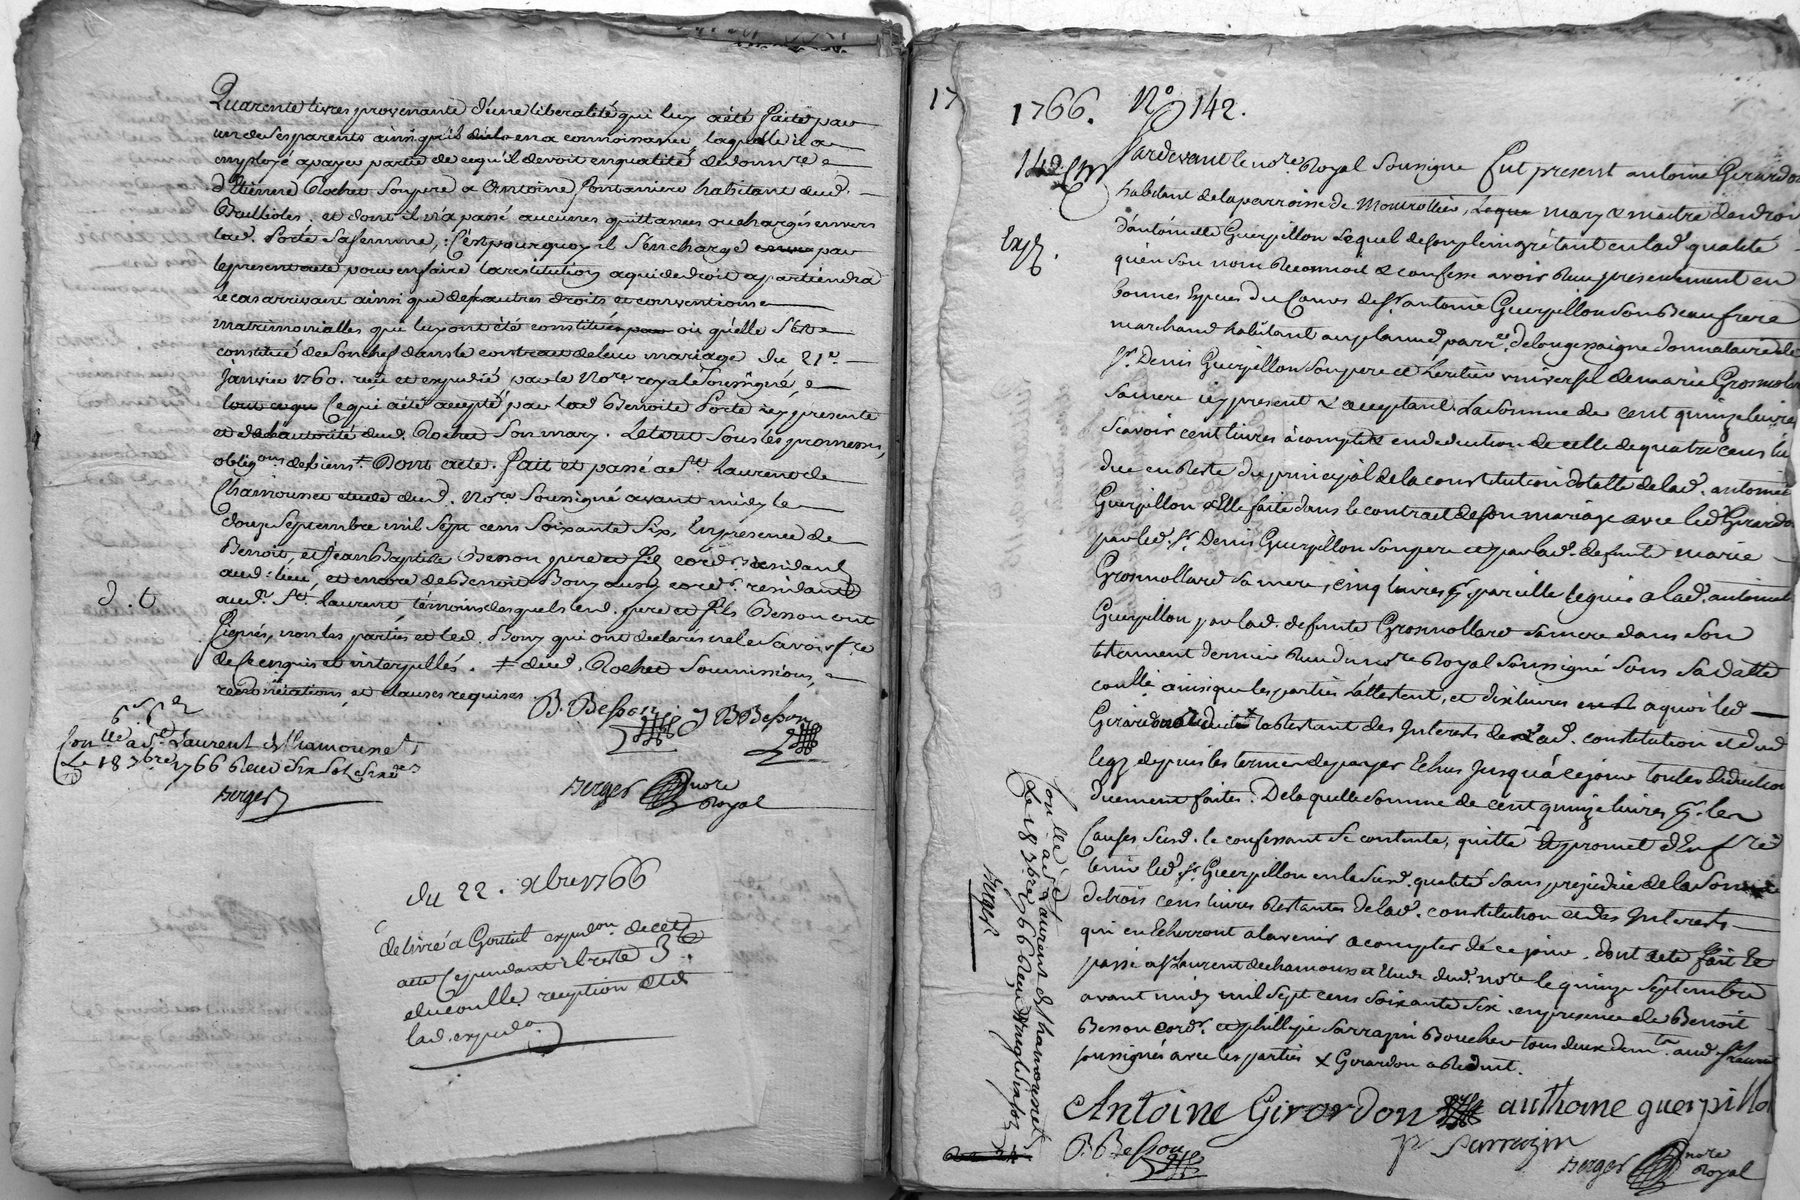 Quarente livres provenante d'une liberalité qui luy a été faite par
un de ses parents ainsi qu'il en a connoissance, laquelle il a
employé a payer partie de ce qu'il devoit en qualité de donnre
d'Etienne Rochet son pere a Antoine fontaniere habitant dud.
Brullioles. et dont il n'a passé aucunes quittances ou charges envers
lad. Porte sa femme, c'est pourquoy il s'en charge par
le present acte pour en faire la restitution a qui de droit apartiendra
le cas arrivant ainsi que des autres droits et conventions
matrimonialles qui luy ont été constitués ou qu'elle s'est
constitué de son chef dans le contrat de leur mariage du 21e
Janvier 1760. reçu et expedié par le Nore royal soussigné
Ce qui a été accepté par lad Benoite Porte icy presente
et de l'autorité dud. Rochet son mary. Le tout sous les promesses,
obligons des biens ‡ Dont acte. fait et passé a St Laurent de
Chamousset etude dud. Nore soussigné avant midy le
douze Septembre mil sept cens soixante six, En presence de
Benoit, et Jean Baptiste Besson pere et fils cordrs residants
aud: lieu, et encore de Benoit Bony aussy cordr. residant
aud. St. Laurent témoins lesquels led. pere et fils Besson ont
signés, non les parties et led. Bony qui ont declarés ne le savoir fre
de ce enquis et interpellés. ‡ dud. Rochet soumissions,
renonciations et clauses requises
B. Besson J B Besson
Conllé a St Laurent de Chamousset
Le 18 7bre 1766 Reçu six sols six ders
Berger
Berger nore Royal
du 22. xbre 1766
delivré a Goutul expedon. de cet
acte cependant il reste 3
du conlle reception et de
lad. expedon
17
1766. No 142.
Pardevant le nore Royal soussigné fut present antoine Girardon
habitant de la parroisse de Montrottier, mary & maitre des droits
d'antoinette Guerpillon lequel de son plein gré tant en lad. qualité
qu'en son nom Reconnoit & confesse avoir Reçu presentement en
bonnes Especes du Cours de Sr antoine Guerpillon son Beaufrere
marchand habitant au parre. de longessaigne donnataire de
Sr. Denis Guerpillon son pere et heritier universel de marie Grosmollard
sa mere icy present & acceptant La somme de cent quinze livres
Scavoir cent livres à compte en deduction de celle de quatre cens liv
due en Reste du principal de la constitution dotalle de lad. antoinette
Guerpillon à Elle faite dans le contrat de son mariage avec led Girardon
par led. Sr. Denis Guerpillon son pere et par lad. defunte marie
Grosmollard sa mere, cinq livres pr. pareille leguée a lad. antoinette
Guerpillon par lad. defunte Grosmollard sa mere dans son
testament dernier Reçu du nore Royal soussigné sous sa datte
conllé ainsi que les parties l'attestent, et dix livres a quoi led
Girardon a Reduit le Restant des Interests de lad. constitution et dud
legz depuis les termes de payer Echus Jusqu'a ce jour toutes deductions
duement faites. De laquelle somme de cent quinze livres pr. les
Causes susd. le confessant se contente, quitte Et promet d'En fre
tenir led. Sr Guerpillon en la susd. qualité sans prejudice de la somme
de trois cens livres Restantes de lad. constitution et des Interests
qui en Echerront a l'avenir a compter de ce jour. dont acte fait Et
passé a St Laurent de chamousset Etude dud. nore le quinze septembre
avant midy mil sept cens soixante six. en presence de Benoit
Besson cordr. et phillipe Sarrazin Boucher tous deux demts aud. St laurent
soussignés avec les parties & Girardon a Reduit.
Conllé a St Laurent de Chamousset
Le 18 7bre 1766 Reçu
Berger
Antoine Girardon anthoine guerpillon
B. Besson p Sarrazin
Berger nore Royal